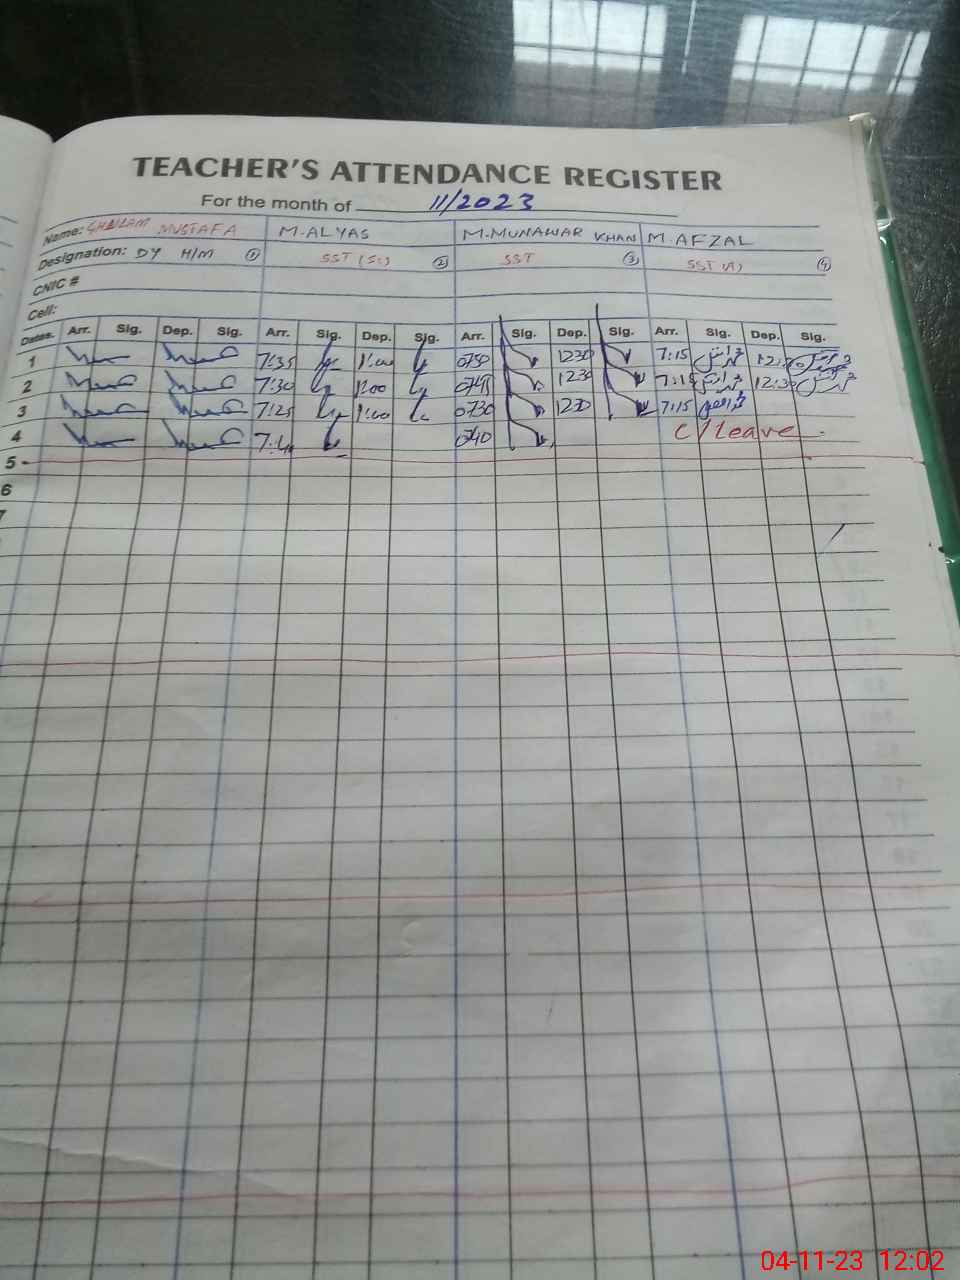 TEACHER'S ATTENDANCE REGISTER
For the month of 11/2023
Name: GHULAM MUSTAFA M.ALYAS M.MUNAWAR KHAN M.AFZAL
Designation: DY H/M ① SST (Sc) ② SST ③ SST(A) ④
CNIC #
Cell:
Dates. Arr. Sig. Dep. Sig. Arr. Sig. Dep. Sig. Arr. Sig. Dep. Sig. Arr. Sig. Dep. Sig.
1 7:35 1:00 0750 1230 7:15
2 7:30 1:00 0745 1230 7:15 12:30
3 7:25 1:00 0730 1230 7:15
4 0740 C/Leave
5
6
7
04-11-23 12:02